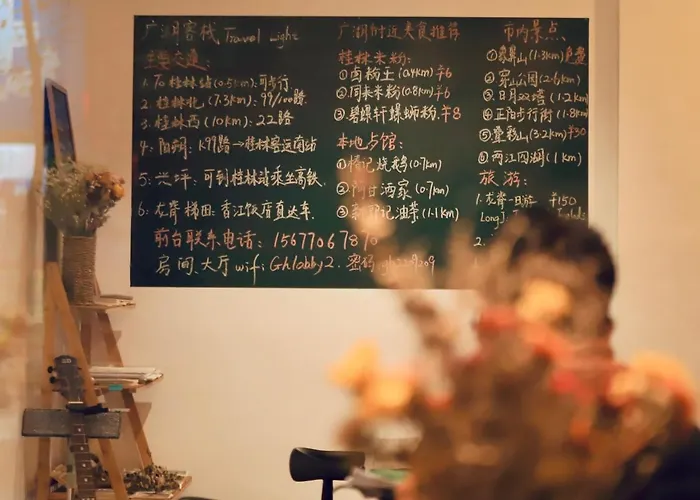 广湖客栈 Travel Light
主要交通:
1. To 桂林站(0.5km):可步行.
2. 桂林北(7.3km): 99/100路.
3. 桂林西(10km): 22路
4. 阳朔: K99路→桂林客运南站
5. 兴坪:可到桂林站乘坐高铁.
6. 龙脊梯田:香江饭店直达车.
前台联系电话: 156770678
房间、大厅wifi: Ghlobby2. 密码:
广湖附近美食推荐
桂林米粉:
①卤粉王(0.4km)¥6
②同来米粉(0.8km)¥6
③碧螺轩螺蛳粉 ¥8
本地菜馆:
记烧鹅(0.7km)
酒家(0.7km)
记油茶(1.1km)
市内景点
①象鼻山(1.3km)免费
②穿山公园(2.6km)
③日月双塔(1.2km)
④正阳步行街(1.8km)
⑤叠彩山(3.2km)¥30
⑥两江四湖(1km)
旅游:
1. 龙脊一日游 ¥150
2.